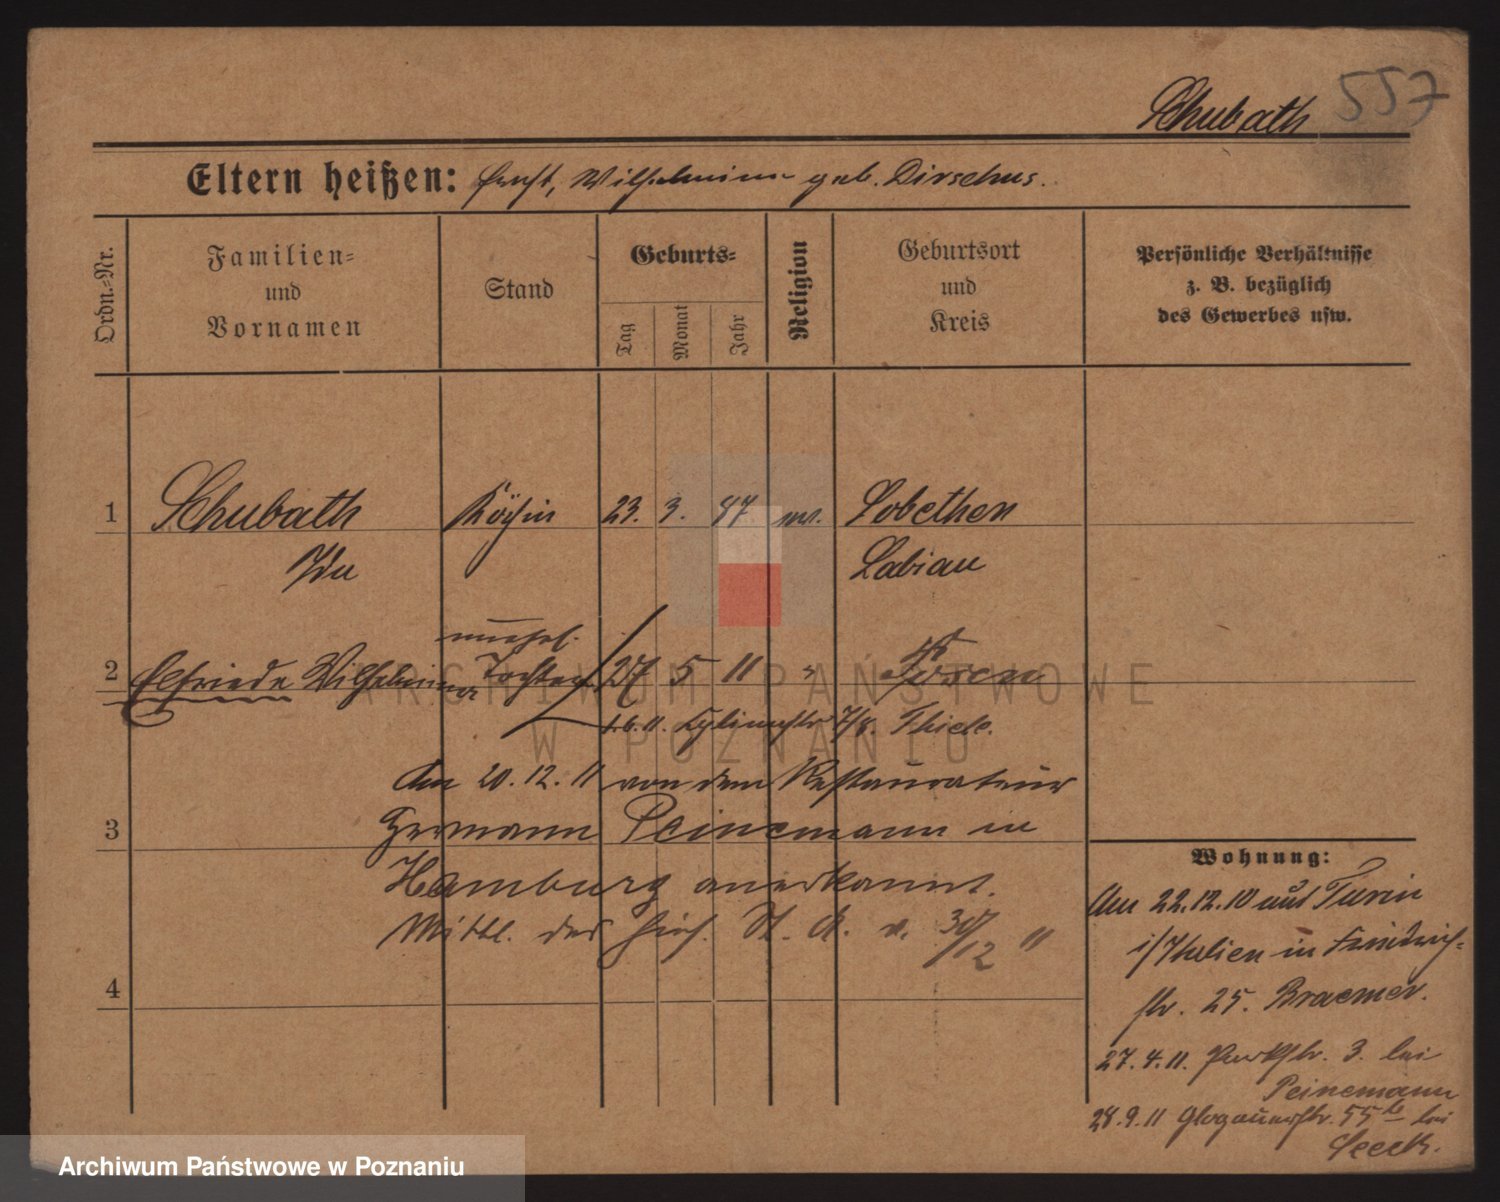 557
Schubath
Eltern heißen: Ernst, Wilhelmine geb. Dirschus.
Ordn.-Nr.
Familien- und Vornamen
Stand
Geburts-
Tag
Monat
Jahr
Religion
Geburtsort und Kreis
Persönliche Verhältnisse z. B. bezüglich des Gewerbes usw.
1 Schubath Köchin 23. 3. 87 ev. Lobethen
Ida Labiau
unehel.
2 Elfriede Wilhelmine Tochter 27 5 11 " Posen
1.6.11. 7/8. Thiele.
Am 20.12.11 von dem Restaurateur
3 Hermann Peinemann in
Hamburg anerkannt.
Mittl. des St. A. v. 30/12 11
4
Wohnung:
Am 22.12.10 aus Turin
i/Italien in Friedrich-
str. 25. Braemer.
27.4.11. Parkstr. 3. bei
Peinemann
28.9.11 Glogauerstr. 55 bei
Seeck.
ARCHIWUM PAŃSTWOWE
W POZNANIU
Archiwum Państwowe w Poznaniu